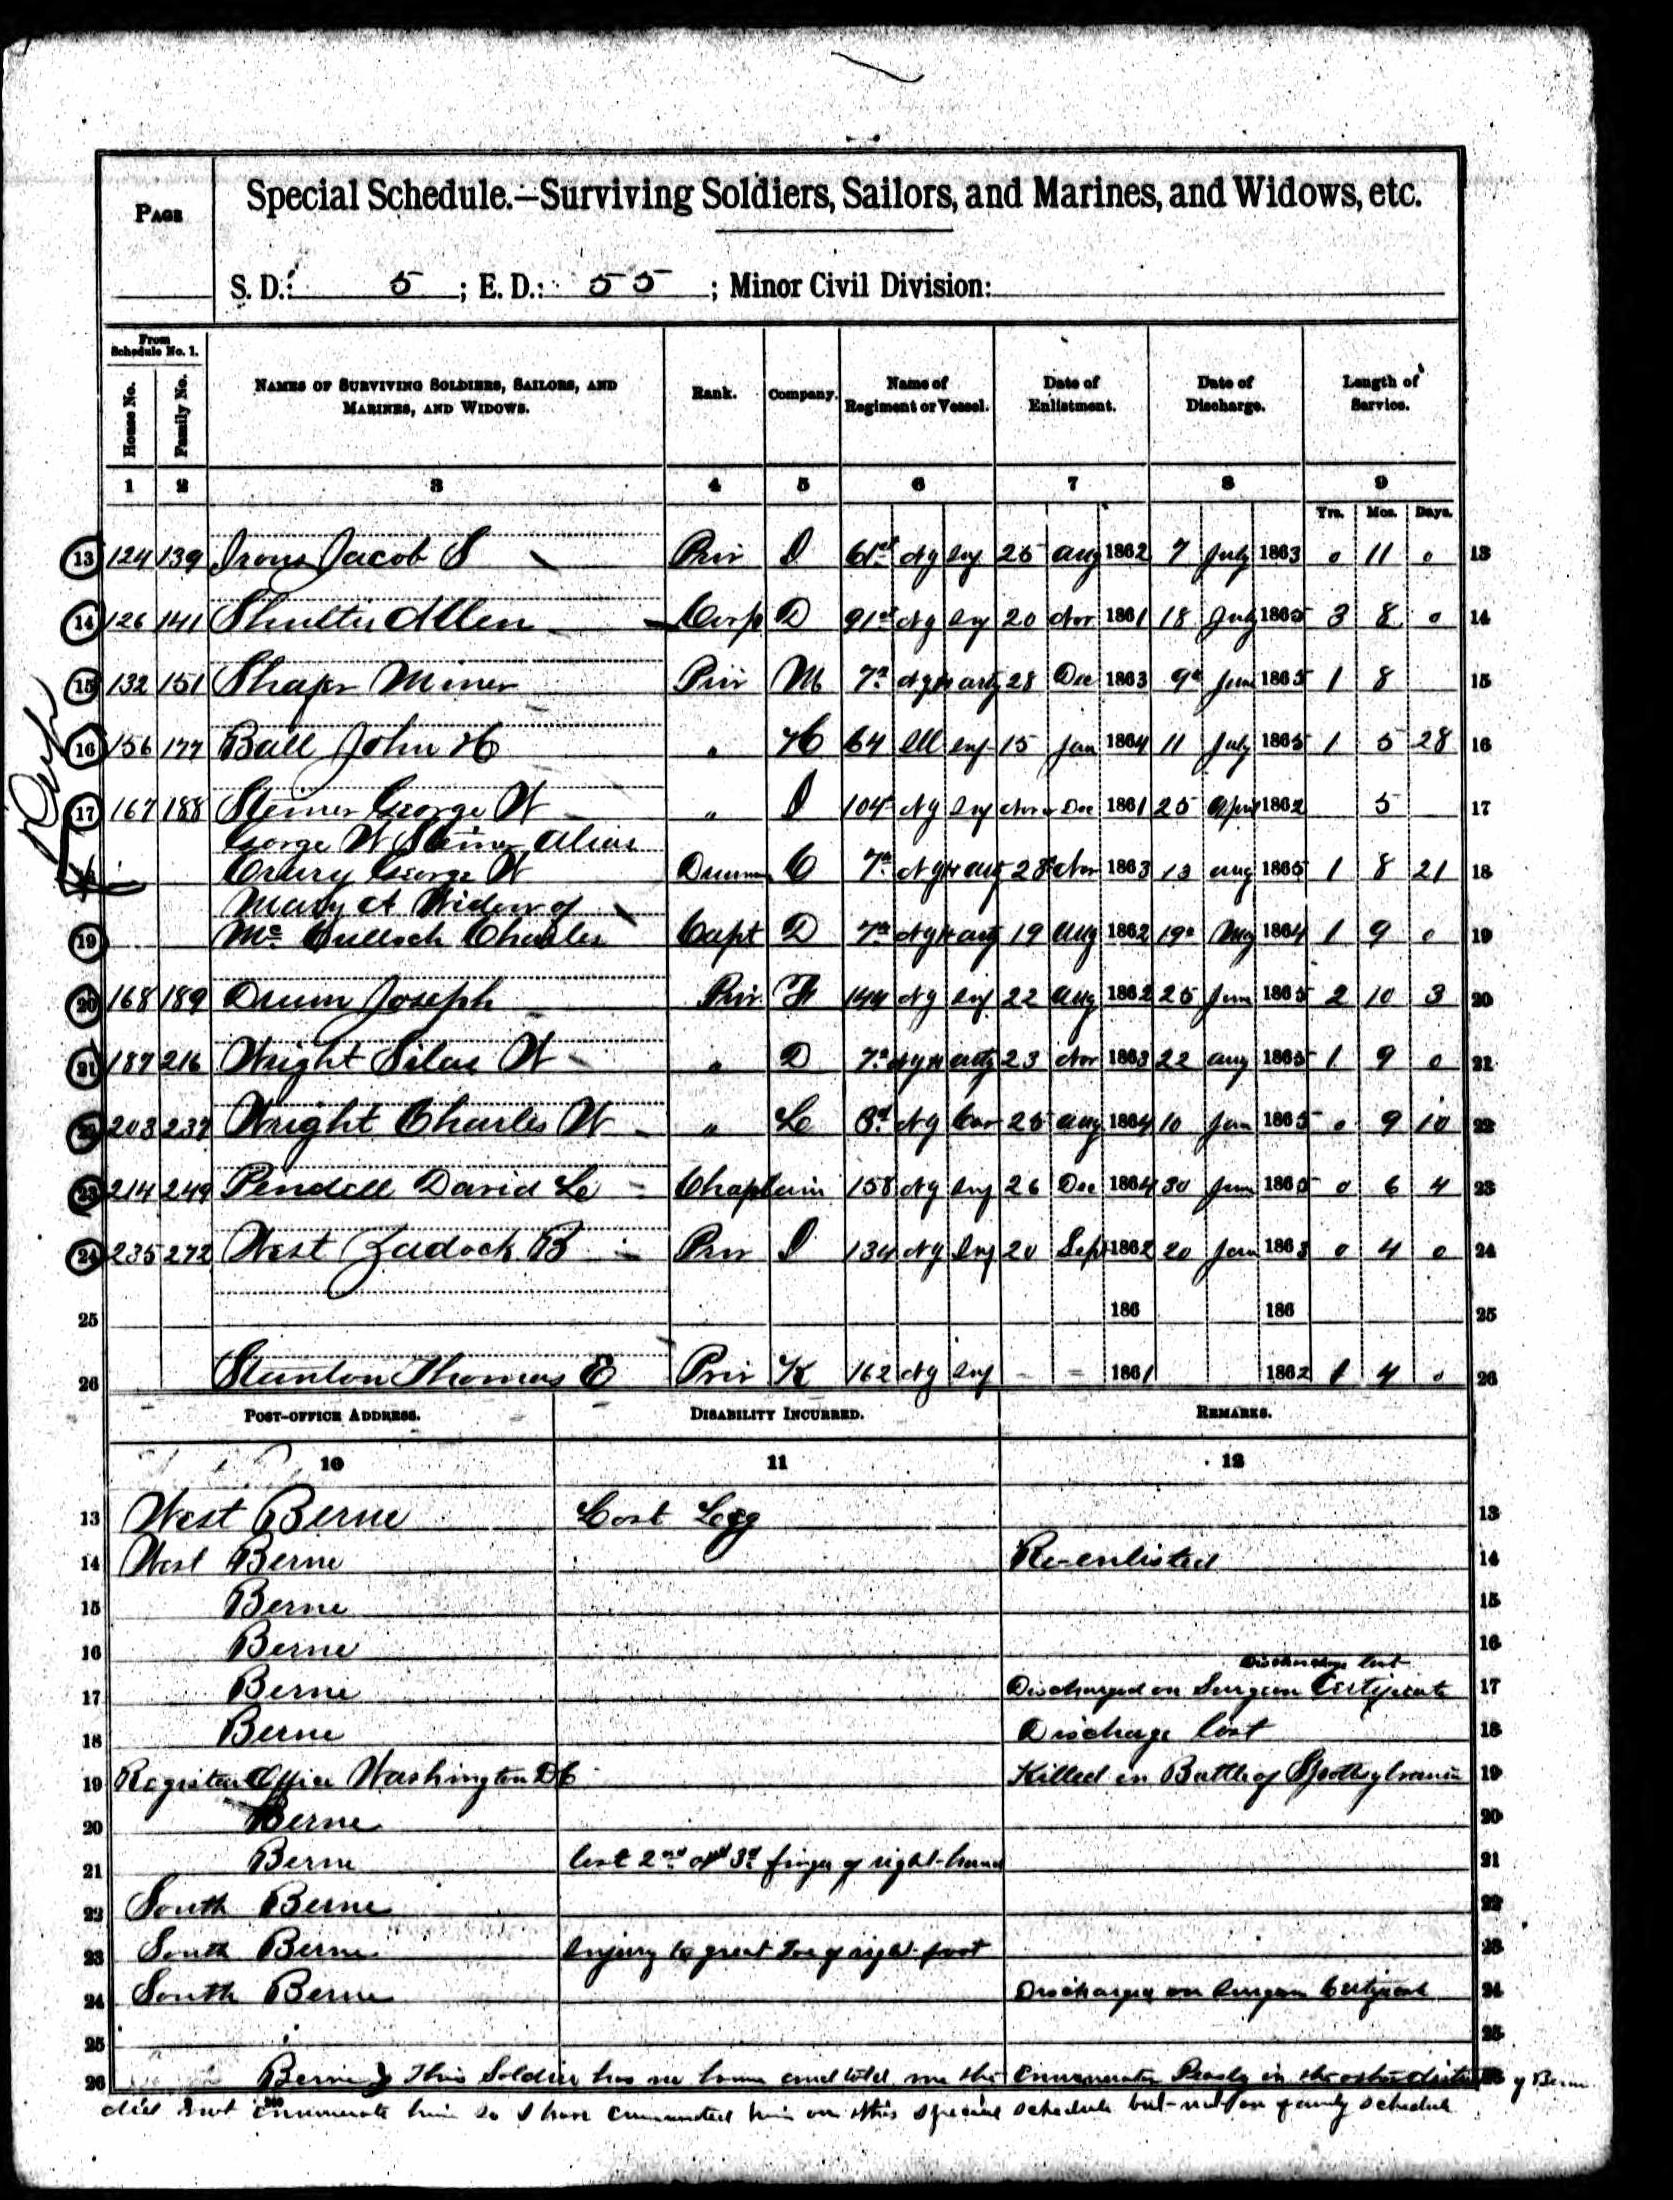 PAGE
Special Schedule.—Surviving Soldiers, Sailors, and Marines, and Widows, etc.
S. D.: 5 ; E. D.: 55 ; Minor Civil Division:
From Schedule No. 1.
House No. Family No. NAMES OF SURVIVING SOLDIERS, SAILORS, AND MARINES, AND WIDOWS. Rank. Company. Name of Regiment or Vessel. Date of Enlistment. Date of Discharge. Length of Service.
1 2 3 4 5 6 7 8 9
Yrs. Mos. Days.
13 124 139 Irons Jacob S Priv I 61st Ny Inf 25 Aug 1862 7 July 1863 0 11 0 13
14 126 141 Shultes Allen Corp D 91st Ny Inf 20 Nov 1861 18 July 1865 3 8 0 14
15 132 151 Miner Priv M 7th Ny H arty 28 Dec 1863 9th June 1865 1 8 15
16 156 177 Ball John H " H 64 Ill inf 15 Jan 1864 11 July 1865 1 5 28 16
17 167 188 Steiner George W " I 104 Ny Inf Nov or Dec 1861 25 April 1862 5 17
George W Steiner Alias
George W C 7th Ny H arty 28 Nov 1863 13 Aug 1865 1 8 21 18
Mary A Widow of
19 Mc Culloch Charles Capt D 7th Ny H arty 19 Aug 1862 19th May 1864 1 9 0 19
20 168 189 Drum Joseph Priv F 144 Ny Inf 22 Aug 1862 25 June 1865 2 10 3 20
21 187 216 Wright Silas W " D 7th Ny H arty 23 Nov 1863 22 Aug 1865 1 9 0 21
22 203 237 Wright Charles W " L 3d Ny Cav 25 Aug 1864 10 Jun 1865 0 9 10 22
23 214 249 Pendell David L Chaplain 158 Ny Inf 26 Dec 1864 30 June 1865 0 6 4 23
24 235 272 West Zadock B Priv I 134 Ny Inf 20 Sep 1862 20 Jan 1863 0 4 0 24
25 186 186 25
26 Stanton Thomas E Priv K 162 Ny Inf - - 1861 1862 1 4 0 26
POST-OFFICE ADDRESS. DISABILITY INCURRED. REMARKS.
10 11 12
13 West Berne Lost Leg 13
14 West Berne Re-enlisted 14
15 Berne 15
16 Berne 16
Discharge lost
17 Berne Discharged on Surgeon Certificate 17
18 Berne Discharge lost 18
19 Office Washington DC Killed in Battle of Spottsylvania 19
20 Berne 20
21 Berne lost 2nd and 3d finger of right hand 21
22 South Berne 22
23 South Berne Injury to great Toe of right foot 23
24 South Berne Discharged on Surgeon Certificate 24
25 25
26 Berne This Soldier has no home and told me the Enumerator in the other district of Berne
did not enumerate him so I have enumerated him on this special schedule but not on family schedule